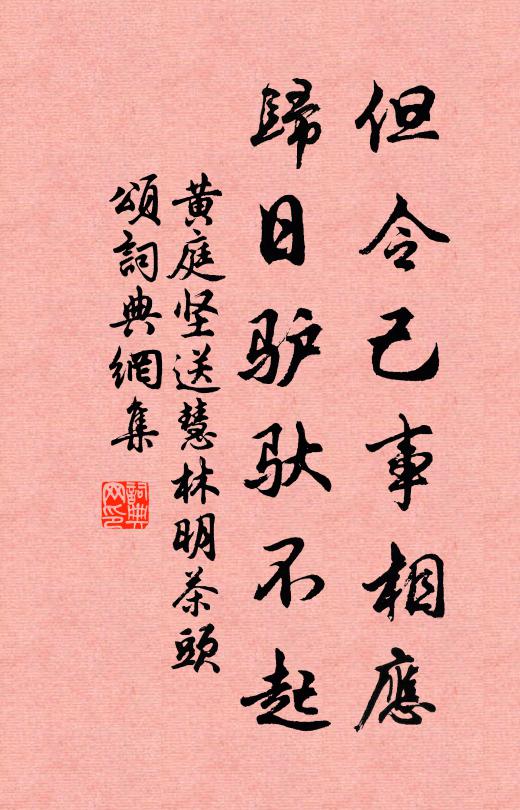 但令己事相應
歸日驴驮不起
黄庭坚送慧林明茶頭
頌詞典網集
詞典网印